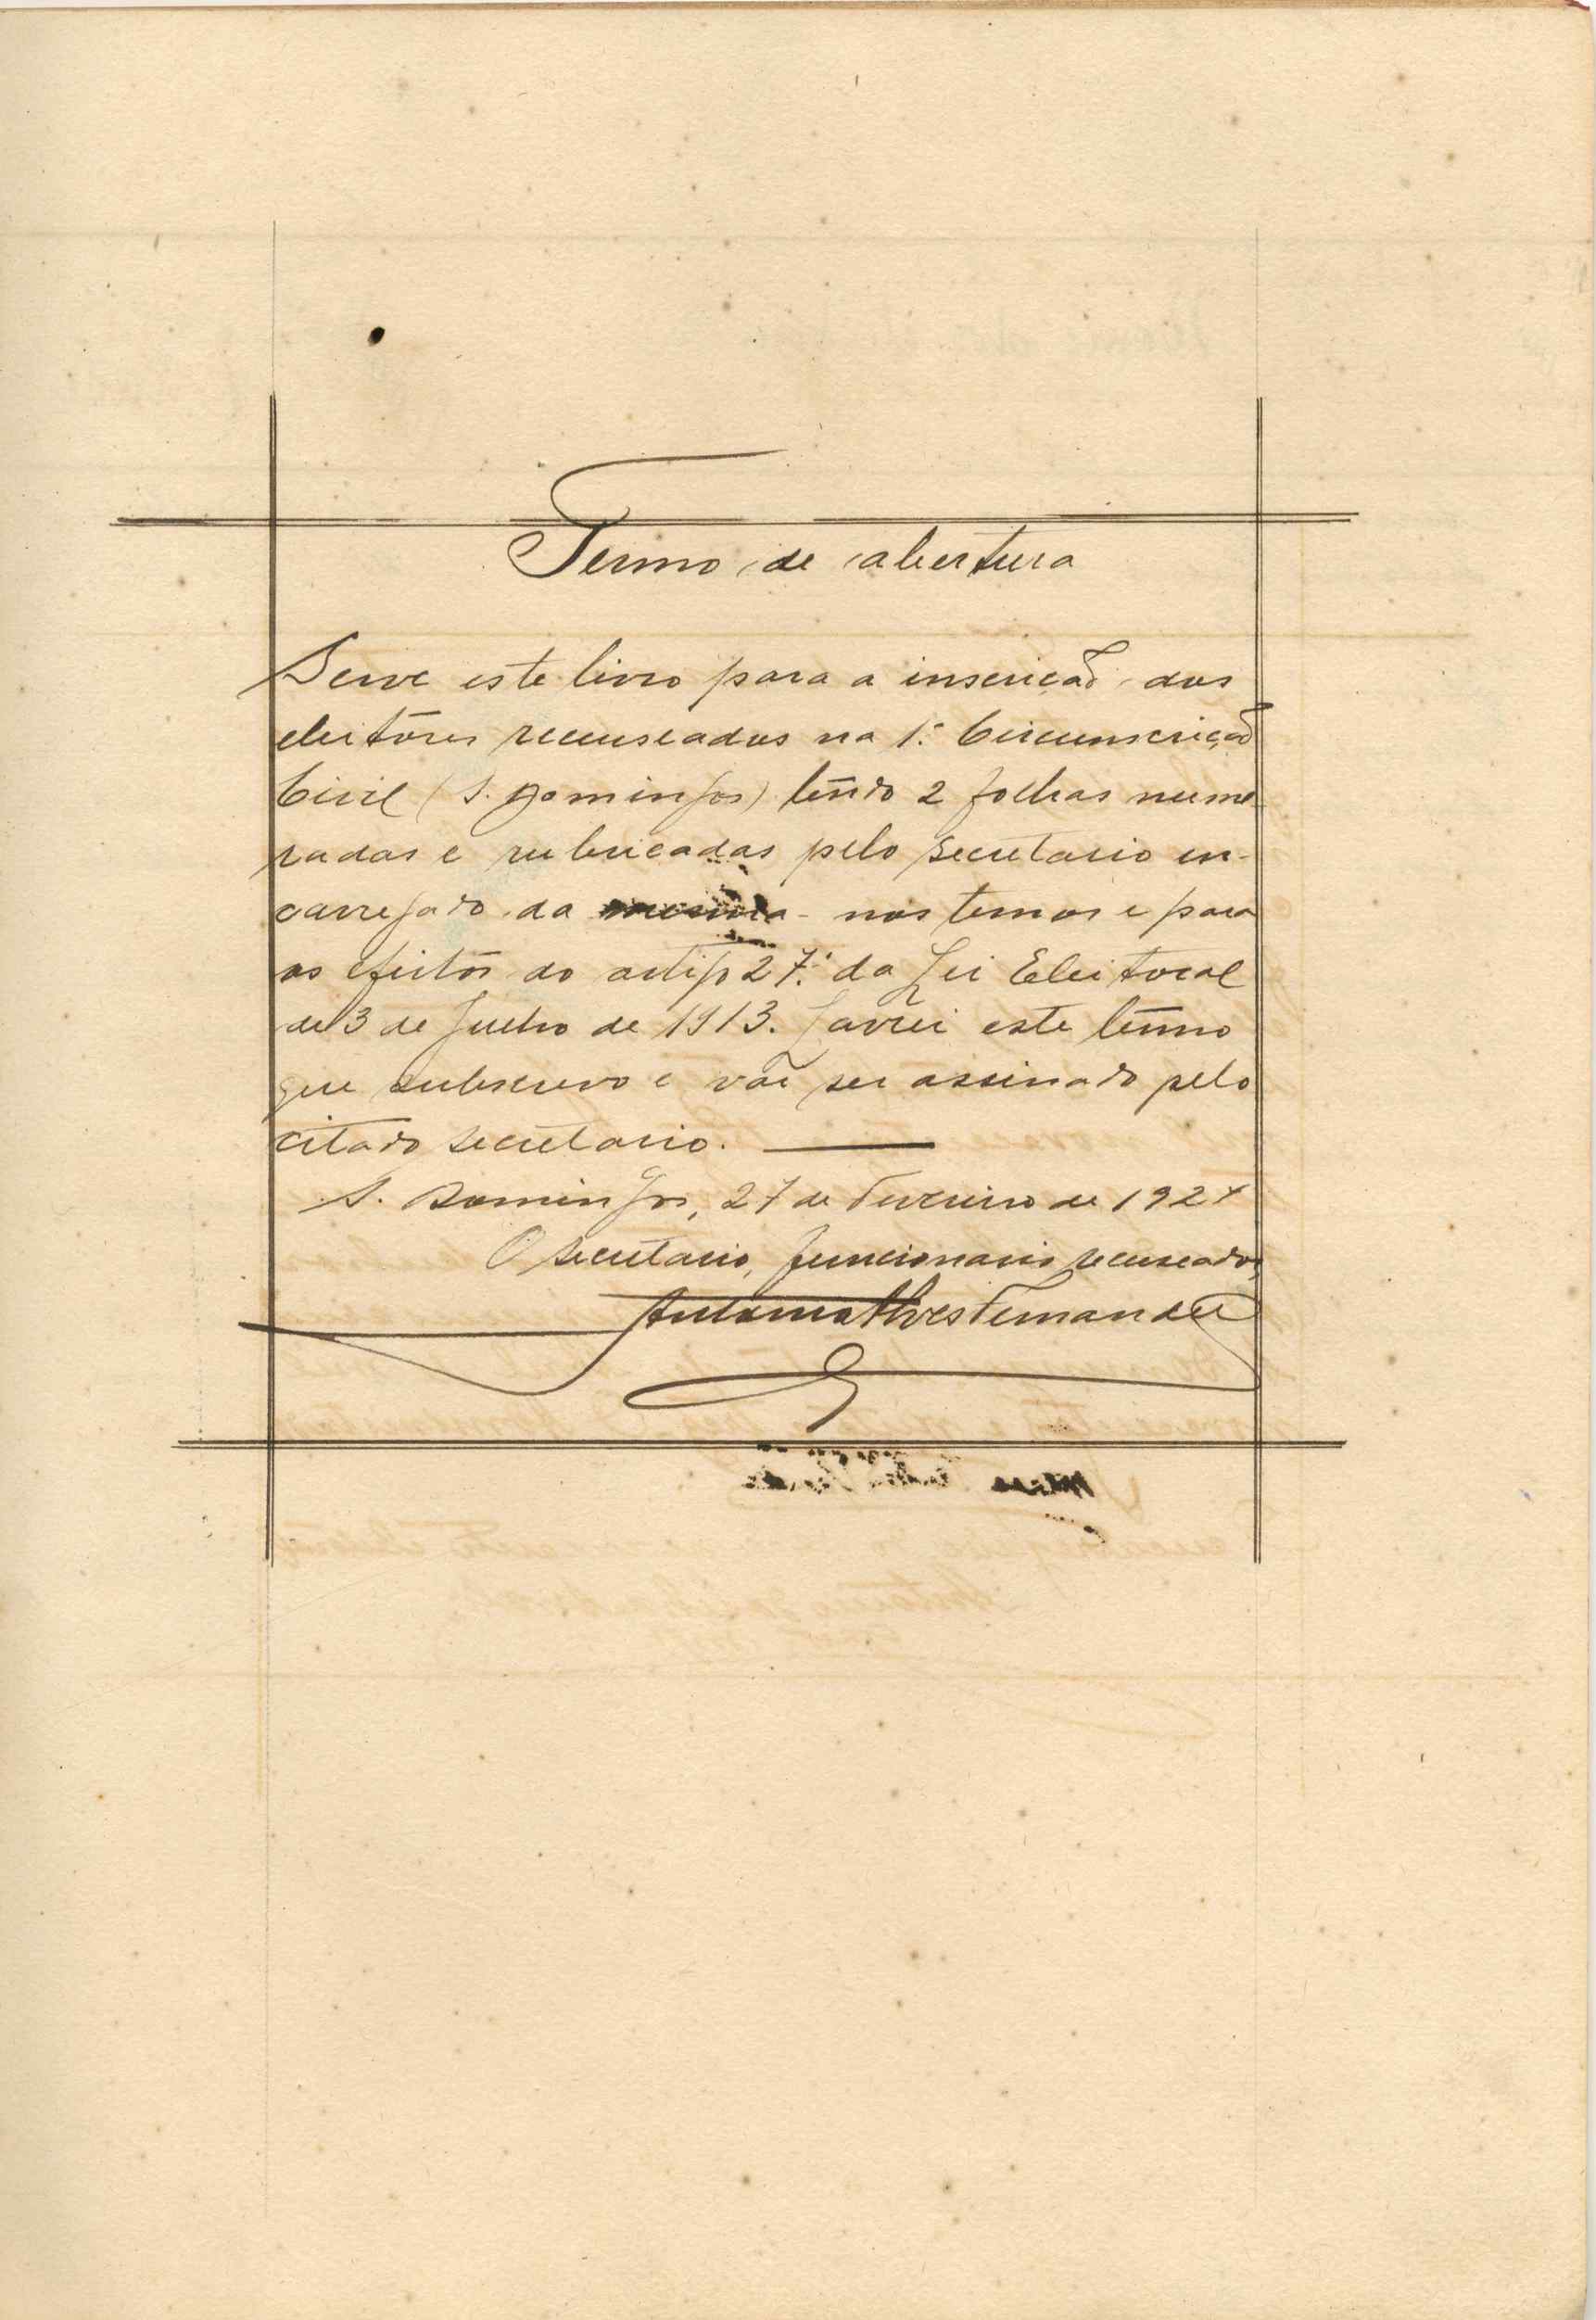 Termo de abertura
Serve este livro para a inscrição dos
eleitôres recenseados na 1.ª Circunscrição
Civil (S. Domingos) tendo 2 folhas nume
radas e rubricadas pelo secretario en-
carregado da mesma - nos termos e para
os efeitos do artigo 27.º da Lei Eleitoral
de 3 de Julho de 1913. Lavrei este têrmo
que subscrevo e vai ser assinado pelo
citado secretario.
S. Domingos, 27 de Fevereiro de 1924
O secretario, funcionario recenseador,
Antonio Alves Fernandes